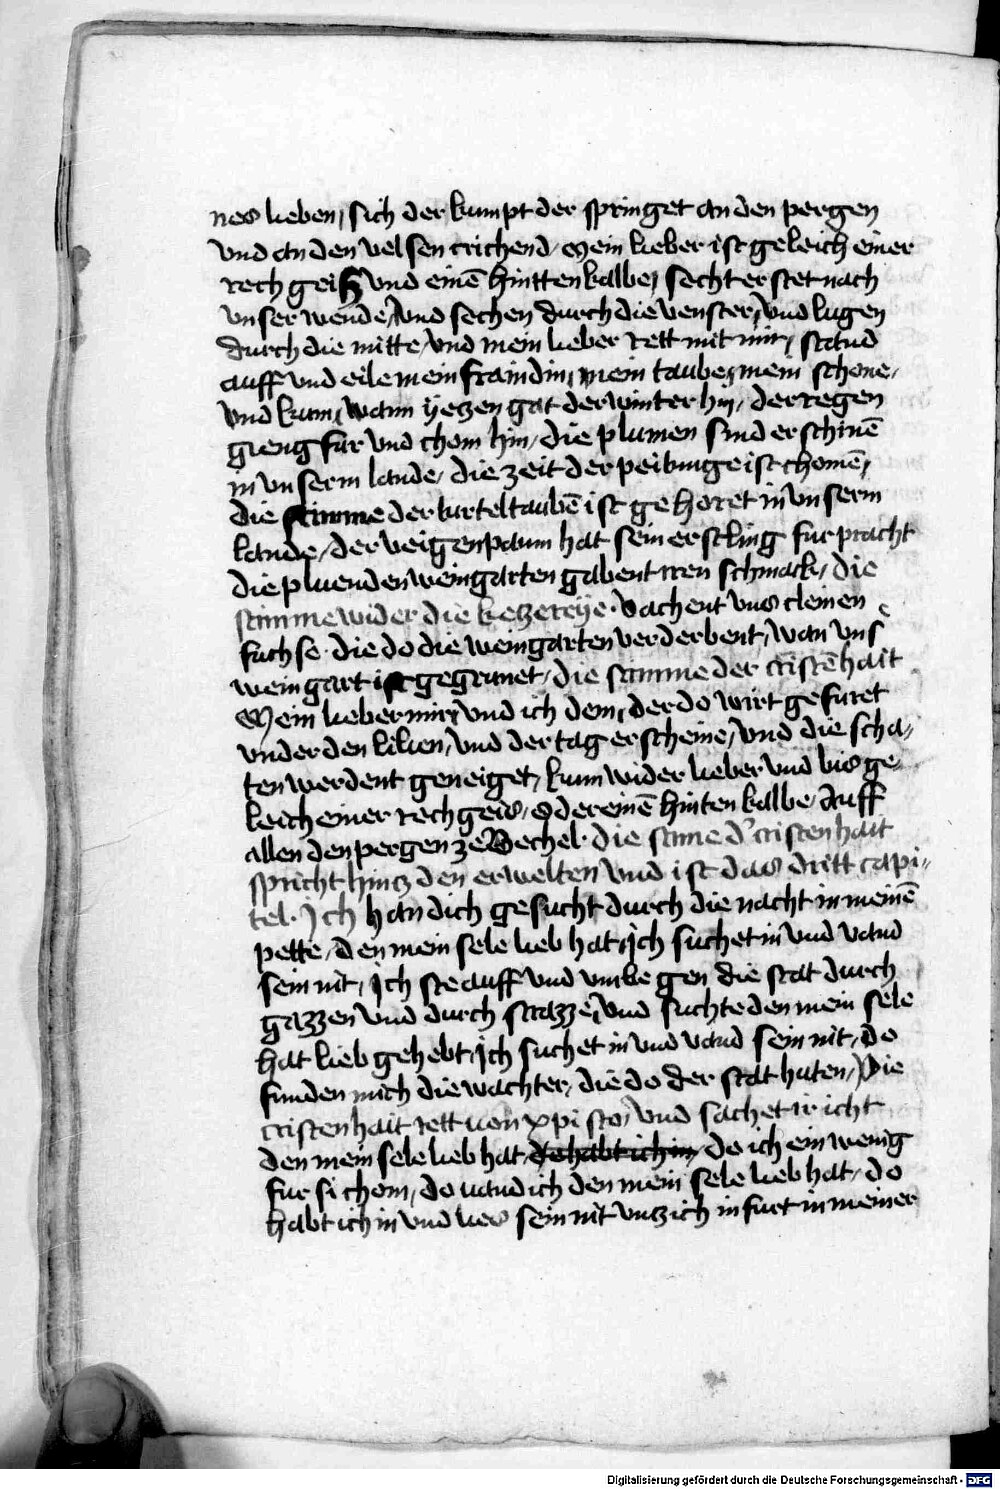 nes lieben, sich der kumpt der springet an den pergen
vnd an den velsen crichend, Mein lieber ist geleich einer
rech geiß vnd einē hintten kalbe, secht er stet nach
vnser wende, vnd sechen durch die venster, vnd lugen
durch die mitte, vnd mein lieber rett mit mir, stand
auff vnd eile mein fraindin, mein taube, mein schone,
vnd kum, wann yeczen gat der winter hin, der regen
gieng fur vnd chom hin, die plumen sind erschinē
in vnserm lande, die zeit der peibunge ist chomē,
die stimme der turteltaubē ist gehoret in vnserm
lande, der veigenpaum hat sein erstling furpracht
die pluenden weingarten gabent iren schmack, die
stimme wider die keczereye. Vachent vns cleinen
fuchse. die do die weingarten verderbent, wan vnser
weingart ist gegrunet, die stimme der cristēhait
Mein lieber mir, vnd ich dem, der do wirt gefuret
vnder den lilien, vnd der tag erscheine, vnd die scha-
ten werdent geneiget, kum wider lieber vnd bis ge-
leich einer rech geis, oder einē hinten kalbe, Auff
allen den pergen ze Bechel. die stime d' cristenhait
spricht hincz den erwelten vnd ist das dritt capi-
tel. Ich han dich gesucht durch die nacht in meinē
pette, den mein sele lieb hat, ich suchet in vnd vand
sein nit, ich ste auff vnd vmbe gen die stat durch
gazzen vnd durch strazzē, vnd suchte den mein sele
hat lieb gehebt, ich suchet in vnd vand sein nit, do
funden mich die wachter, die do der stat huten, Die
cristenhait rett von xpisto, vnd sachet ir icht
den mein sele lieb hat, do habt ich in, do ich ein wenig
fur si chom, do vand ich den mein sele lieb hat, do
habt ich in vnd lies sein nit vncz ich in furt in meiner
Digitalisierung gefördert durch die Deutsche Forschungsgemeinschaft - DFG